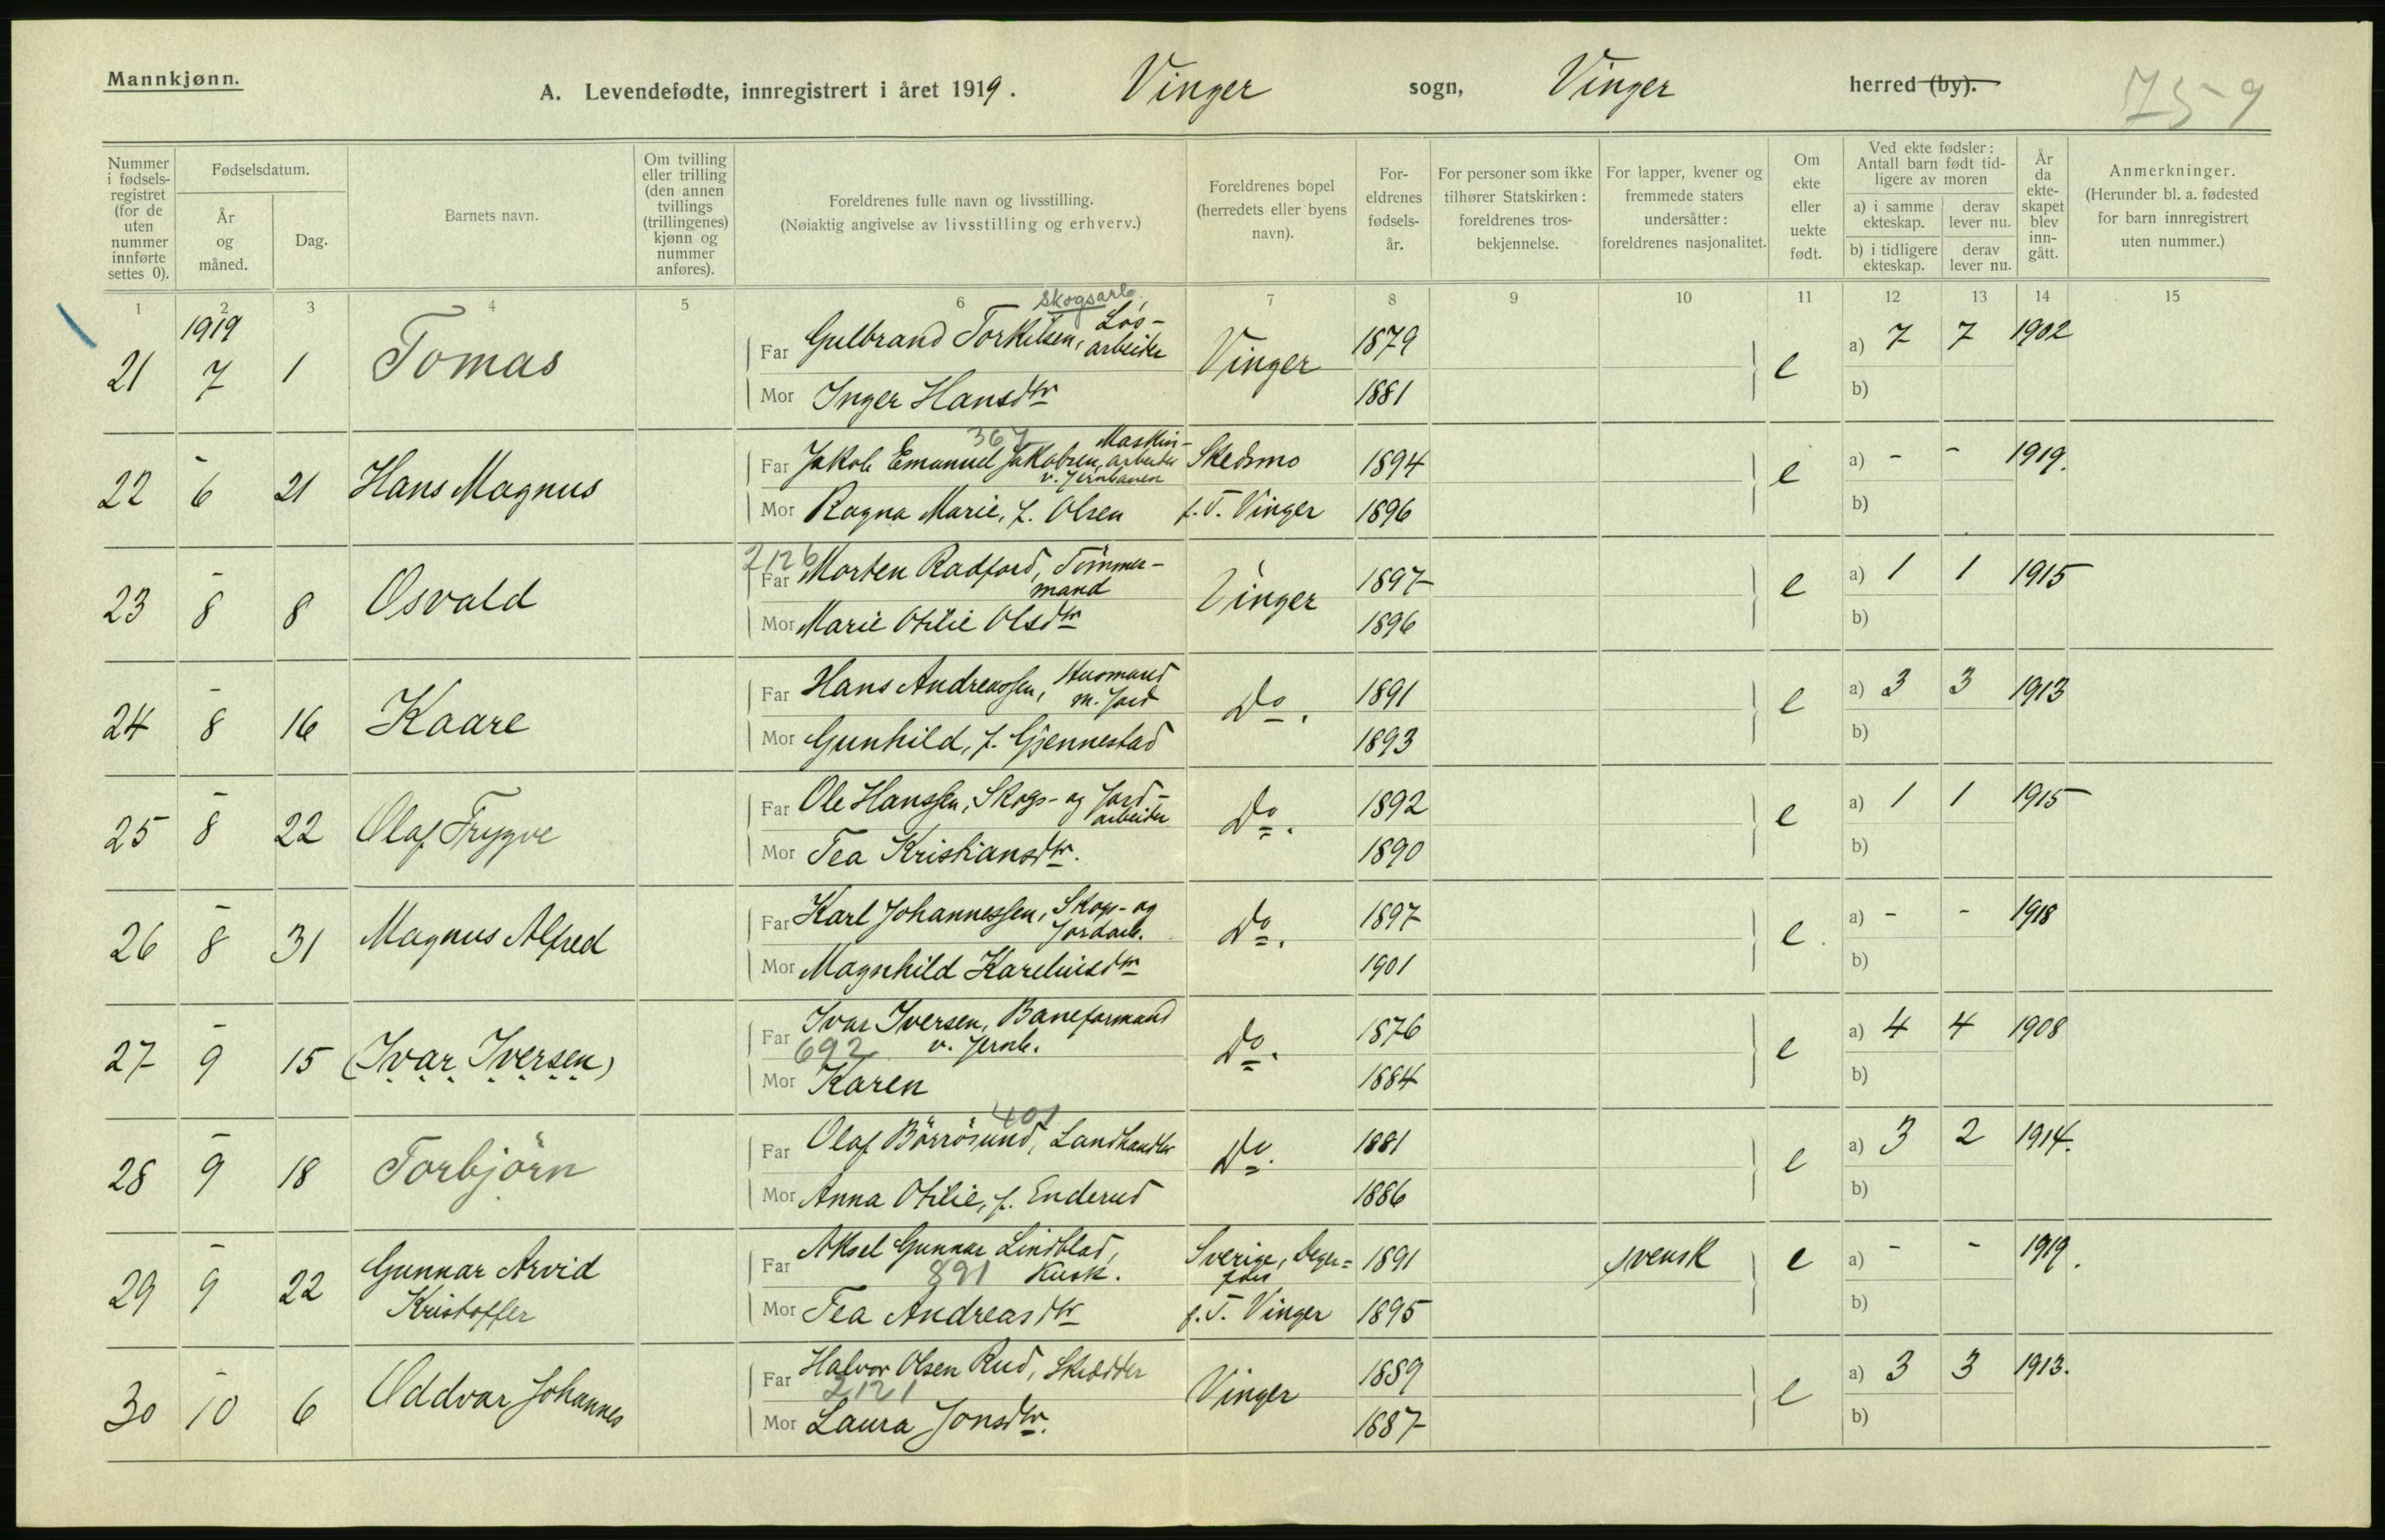 Mannkjønn.
A. Levendefødte, innregistrert i året 1919. Vinger sogn, Vinger herred (by).
75-9
Nummer i fødsels- registret (for de uten nummer innførte settes 0).
Fødselsdatum.
År og måned.
Dag.
Barnets navn.
Om tvilling eller trilling (den annen tvillings (trillingenes) kjønn og nummer anføres).
Foreldrenes fulle navn og livsstilling.
(Nøiaktig angivelse av livsstilling og erhverv.)
Foreldrenes bopel (herredets eller byens navn).
For- eldrenes fødsels- år.
For personer som ikke tilhører Statskirken: foreldrenes tros- bekjennelse.
For lapper, kvener og fremmede staters undersåtter: foreldrenes nasjonalitet.
Om ekte eller uekte født.
Ved ekte fødsler: Antall barn født tid- ligere av moren
a) i samme ekteskap.
derav lever nu.
b) i tidligere ekteskap.
derav lever nu.
År da ekte- skapet blev inn- gått.
Anmerkninger.
(Herunder bl. a. fødested for barn innregistrert uten nummer.)
1 2 3 4 5 6 7 8 9 10 11 12 13 14 15
1919
skogsarb.
21 7 1 Tomas Far Gulbrand Torkilsen, Løs- arbeider Vinger 1879 e a) 7 7 1902
Mor Inger Hansdtr 1881 b)
367
22 - 6 21 Hans Magnus Far Jakob Emanuel Jakobsen, Maskin- arbeider v. Jernbanen Skedsmo 1894 e a) - - 1919.
Mor Ragna Marie, f. Olsen f. T. Vinger 1896 b)
2126
23 - 8 8 Osvald Far Morten Radford, Tömmer- mand Vinger 1897 e a) 1 1 1915
Mor Marie Otilie Olsdtr 1896 b)
24 - 8 16 Kaare Far Hans Andreassen, Husmand m. Jord Do. 1891 e a) 3 3 1913
Mor Gunhild, f. Gjennestad 1893 b)
25 - 8 22 Olaf Trygve Far Ole Hanssen, Skogs- og Jord- arbeider Do. 1892 e a) 1 1 1915
Mor Tea Kristiansdtr. 1890 b)
26 - 8 31 Magnus Alfred Far Karl Johannessen, Skogs- og Jordarb. Do. 1897 e. a) - - 1918
Mor Magnhild Kareliusdtr 1901 b)
27 - 9 15 (Ivar Iversen) Far Ivar Iversen, Baneformand v. Jernb. Do. 1876 e a) 4 4 1908
692
Mor Karen 1884 b)
401
28 - 9 18 Torbjörn Far Olaf Börrösund, Landhandler Do. 1881 e a) 3 2 1914.
Mor Anna Otilie, f. Enderud 1886 b)
29 - 9 22 Gunnar Arvid Kristoffer Far Aksel Gunnar Lindblad, Kusk. Sverige, Deger= fors 1891 svensk e a) - - 1919.
891
Mor Tea Andreasdtr f. T. Vinger 1895 b)
30 - 10 6 Oddvar Johannes Far Halvor Olsen Rud, Skrædder Vinger 1889 e a) 3 3 1913.
2121
Mor Laura Jonsdtr. 1887 b)